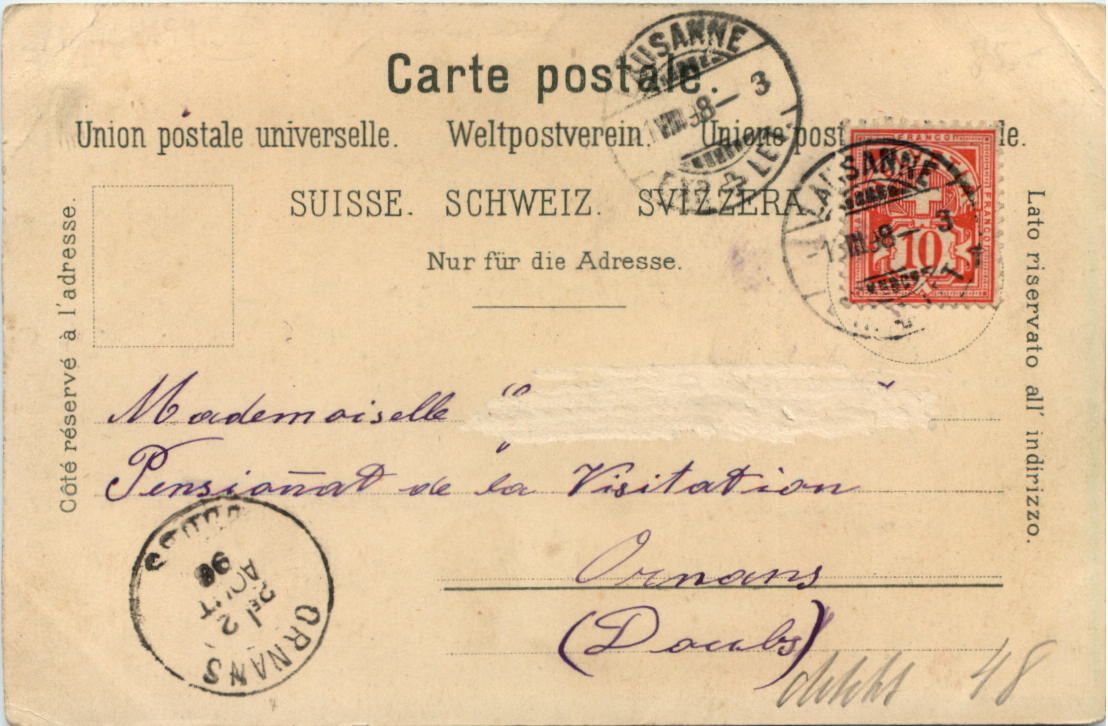 Carte postale.
Union postale universelle. Weltpostverein. Unione post le.
SUISSE. SCHWEIZ. SVIZZERA
Nur für die Adresse.
Côté réservé à l'adresse.
Lato riservato all' indirizzo.
LAUSANNE
1 VIII 98 – 3
LAUSANNE
1 VIII 98 – 3
FRANCO
10
Mademoiselle "
Pensionnat de la Visitation
Ornans
(Doubs)
DOUBS
98
AOUT
2
ORNANS
48
85.-